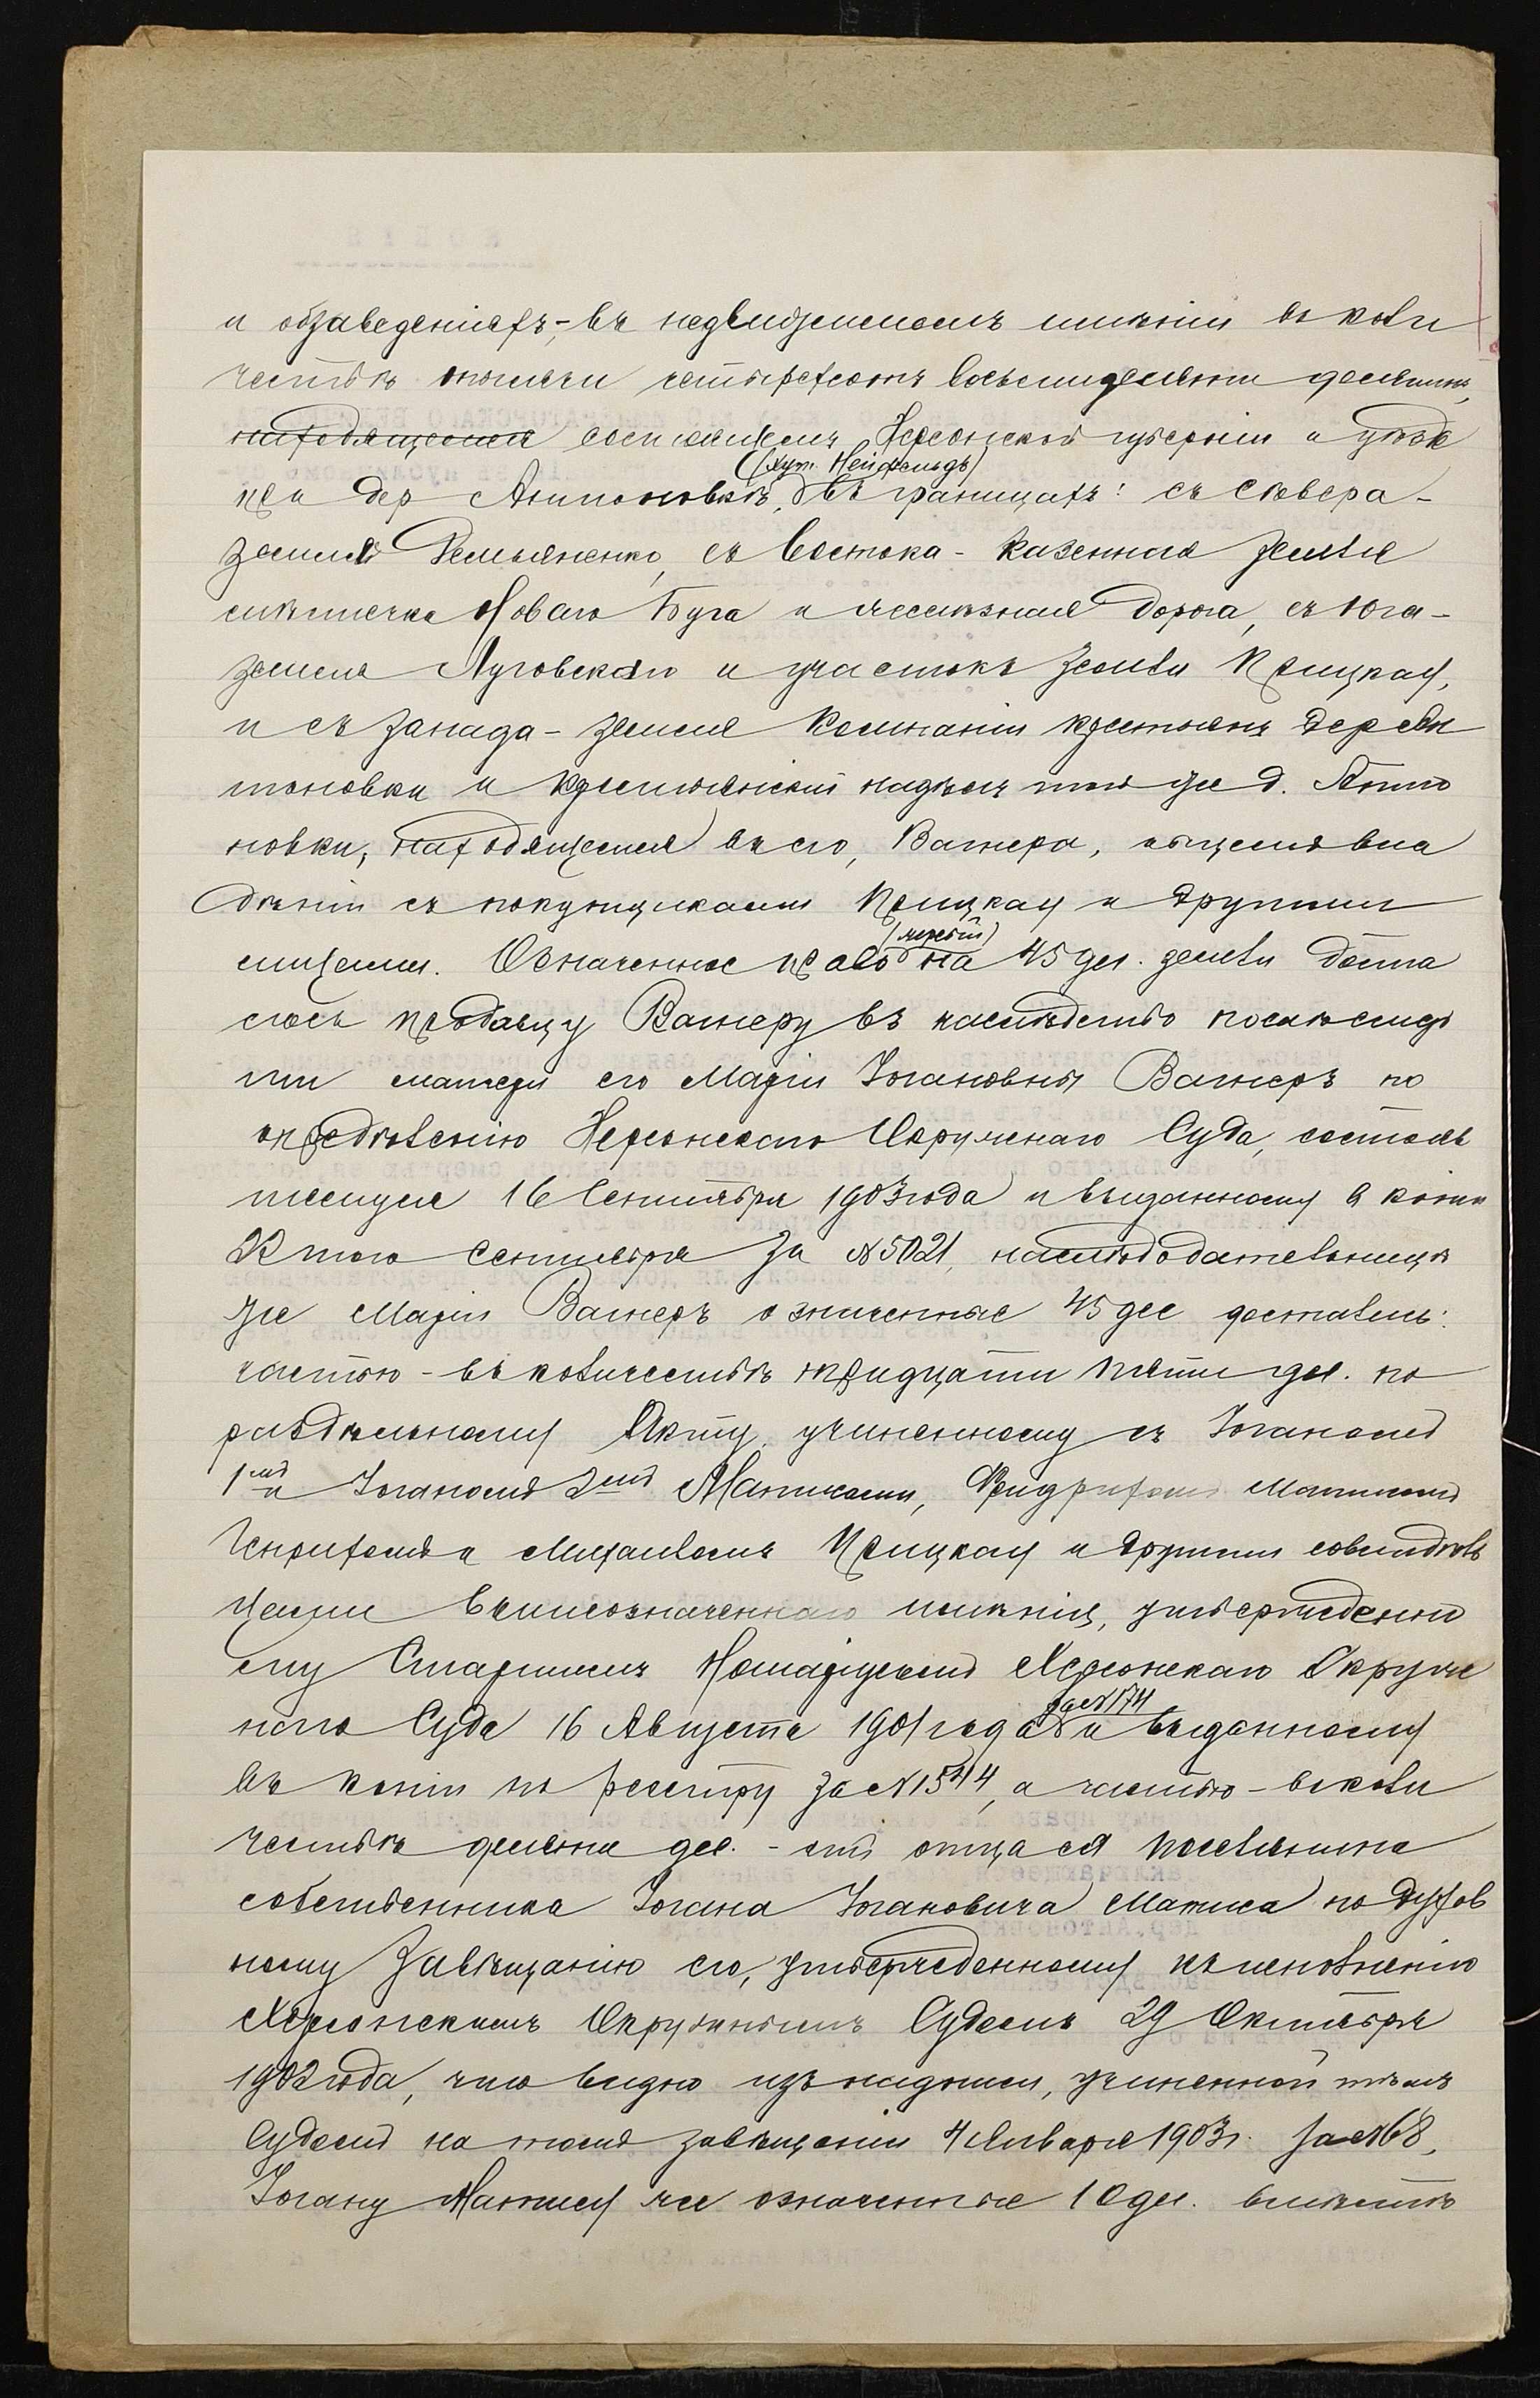 и обзаведеніемъ,- въ недвижимомъ имѣніи въ коли
чествѣ тысячи четырехсотъ восьмидесяти десятинъ,
находящемся состоящемъ Херсонской губерніи и уѣзда
(хут. Нейфельдъ)
при дер Антоновкѣ, въ границахъ: съ сѣвера-
земля Демьяненко, съ Востока - Казенная земля
мѣстечка Новаго Буга и желѣзная дорога, съ Юга-
земля Луговскаго и участокъ земли Прицкау,
и съ запада - земля Компаніи крестьянъ дер Ан
тоновки и крестьянскій надѣлъ той же д. Анто
новки, находящемся въ его, Вагнера, общемъ вла
дѣніи съ покупщиками Прицкау и другими
лицами. Означенное право на 45 дес. земли доста
лось продавцу Вагнеру въ наслѣдство послѣ смер
ти матери его Маріи Іогановны Вагнеръ по
опредѣленію Херсонскаго Окружнаго Суда, состояв
шемуся 16 Сентября 1903 года и выданному въ копіи
того Сентября за №5021, наслѣдодательницѣ
же Маріи Вагнеръ означенные 45 дес достались:
частью - въ количествѣ тридцати пяти дес. по
раздѣльному Акту, учиненному съ Іоганомъ
1мъ и Іоганомъ 2мъ Матисами, Фридрихомъ Матисомъ
Генрихомъ и Михаиломъ Прицкау и другими совладѣль
цами вышеозначеннаго имѣнія, утвержденно
му Старшимъ Нотаріусомъ Херсонскаго Окруж
за №174
наго Суда 16 Августа 1901 года и выданному
въ копіи по реестру за №1544, а частью - въ коли
чествѣ десяти дес. - отъ отца ея поселянина
собственника Іогана Іогановича Матиса по духов
ному завѣщанію его, утвержденному къ исполненію
Херсонскимъ Окружнымъ Судомъ 29 Октября
1902 года, что видно изъ надписи, учиненной тѣмъ
Судомъ на томъ завѣщаніи 4 Января 1903 г. за №68,
Іогану Матису же означенные 10 дес. вмѣстѣ